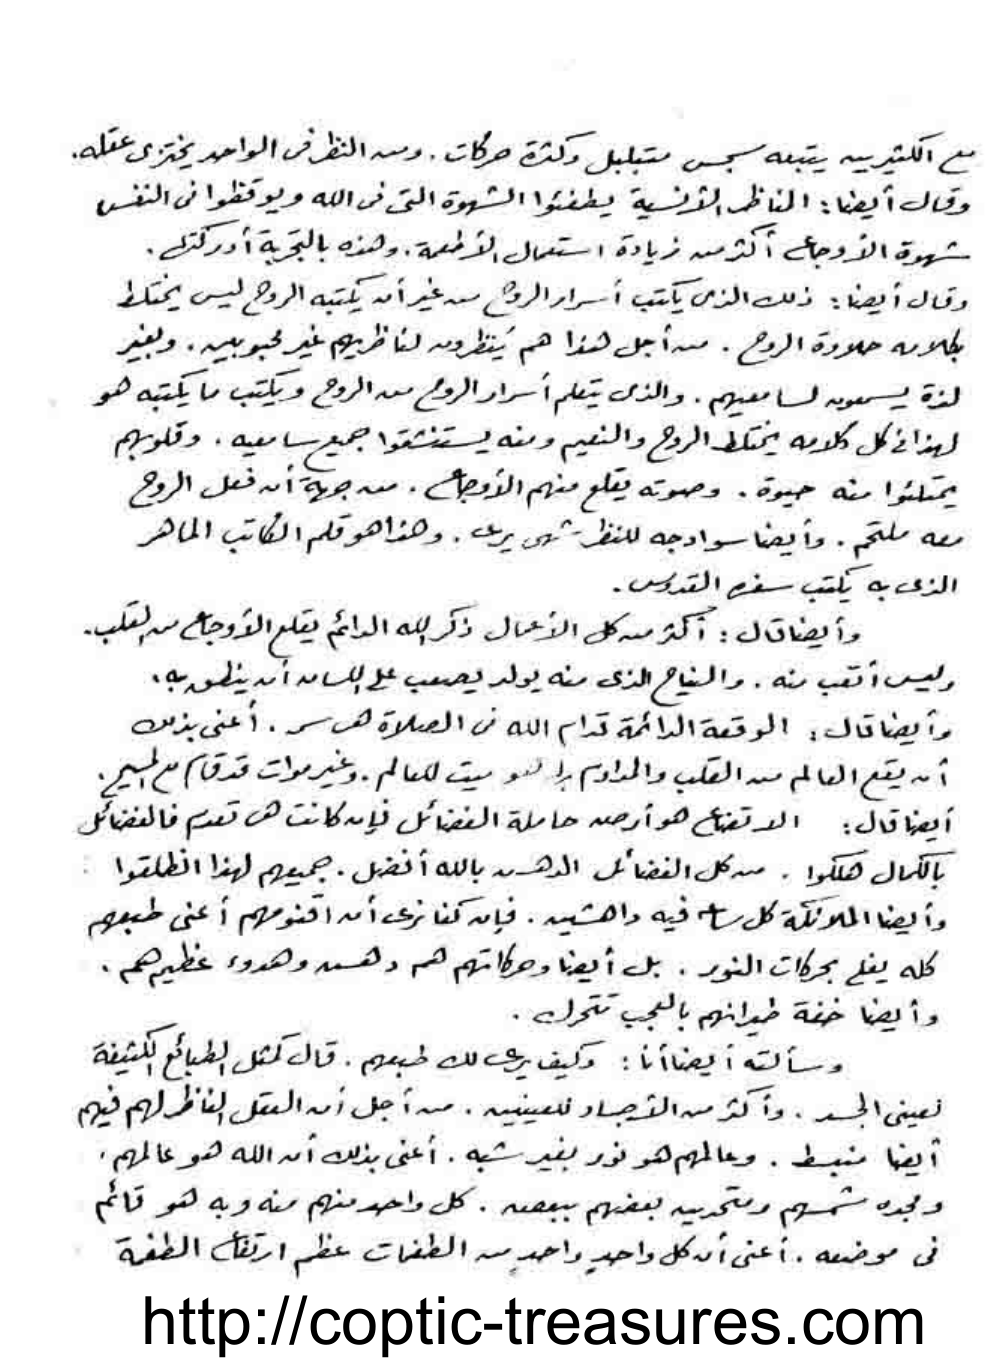 مع الكثيرين يتبعه سجس متبلبل وكثرة حركات . ومن النظر فى الواحد يختزى عقله .
وقال أيضا : المناظر الأنسية يطفئوا الشهوة التى فى الله ويوقظوا فى النفس
شهوة الأوجاع أكثر من زيادة استعمال الأطعمة . وهذه بالتجربة أدركتك .
وقال أيضا : ذلك الذى يكتب أسرار الروح من غير أن يكتبه الروح ليس يختلط
بكلامه حلاوة الروح . من أجل هذا هم يُنظرون لناظريهم غير محبوبين . وبغير
لذة يسمعون لسامعيهم . والذى يتعلم أسرار الروح من الروح ويكتب ما يكتبه هو
لهذا فى كل كلامه يختلط الروح والنعيم ومنه يستنشقوا جميع سامعيه . وقلوبهم
يمتلئوا منه حيوة . وصوته يقلع منهم الأوجاع . من جهة أن فعل الروح
معه ملتحم . وأيضا سواد وجه للنظر شهى يرى . وهذا هو قلم الكاتب الماهر
الذى به يكتب سفر القدوس .
وأيضا قال : أكثر من كل الأعمال ذكر الله الدائم يقلع الأوجاع من القلب .
وليس أتعب منه . والنياح الذى منه يولد يصعب على اللسان أن ينطق به .
وأيضا قال : الوقعة الدائمة قدام الله فى الصلاة هى سر . أعنى بذلك
أن يقع العالم من القلب والمداوم لهو ميت للعالم . وغير موات قد قام مع المسيح .
أيضا قال : الاتضاع هو أرض حاملة الفضائل فإن كانت هى تعدم فالفضائل
بالكمال هلكوا . من كل الفضائل الدهش بالله أفضل . جميعهم لهذا انطلقوا :
وأيضا الملائكة كل ساعة فيه داهشين . فإن كنا نرى أن أقنومهم أعنى طبعهم
كله يغلى بحركات النور . بل أيضا وحركاتهم هم دهش وهدوء عظيم هم .
وأيضا خفة طيرانهم بالعجب تتحرك .
وسألته أيضا أنا : وكيف يرى لك طبعهم . قال كمثل الطبائع الكثيفة
لعينى الجسد . وأكثر من الأجساد للعينيين . من أجل أن العقل الناظر لهم فيهم
أيضا منبسط . وعالمهم هو نور بغير شبه . أعنى بذلك أن الله هو عالمهم .
ومجده شمسهم ومتحدين بعضهم ببعض . كل واحد منهم منه وبه هو قائم
فى موضعه . أعنى أن كل واحدٍ واحدٍ من الطغمات عظم ارتفاع الطغمة
http://coptic-treasures.com